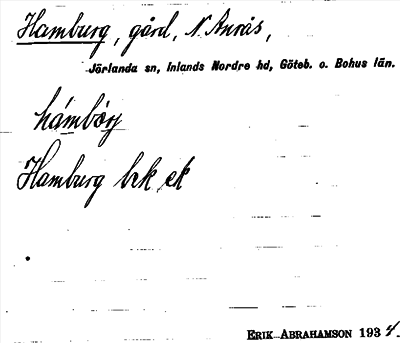 Hamburg, gård, N Anrås,
Jörlanda sn, Inlands Nordre hd, Göteb. o. Bohus län.
hámbòrj
Hamburg brk ek
ERIK ABRAHAMSON 1934.